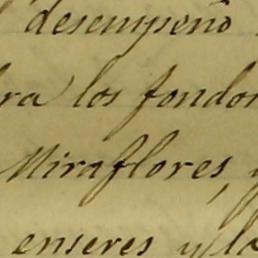 desempeño
ra los fondos
Miraflores, y
enseres y la